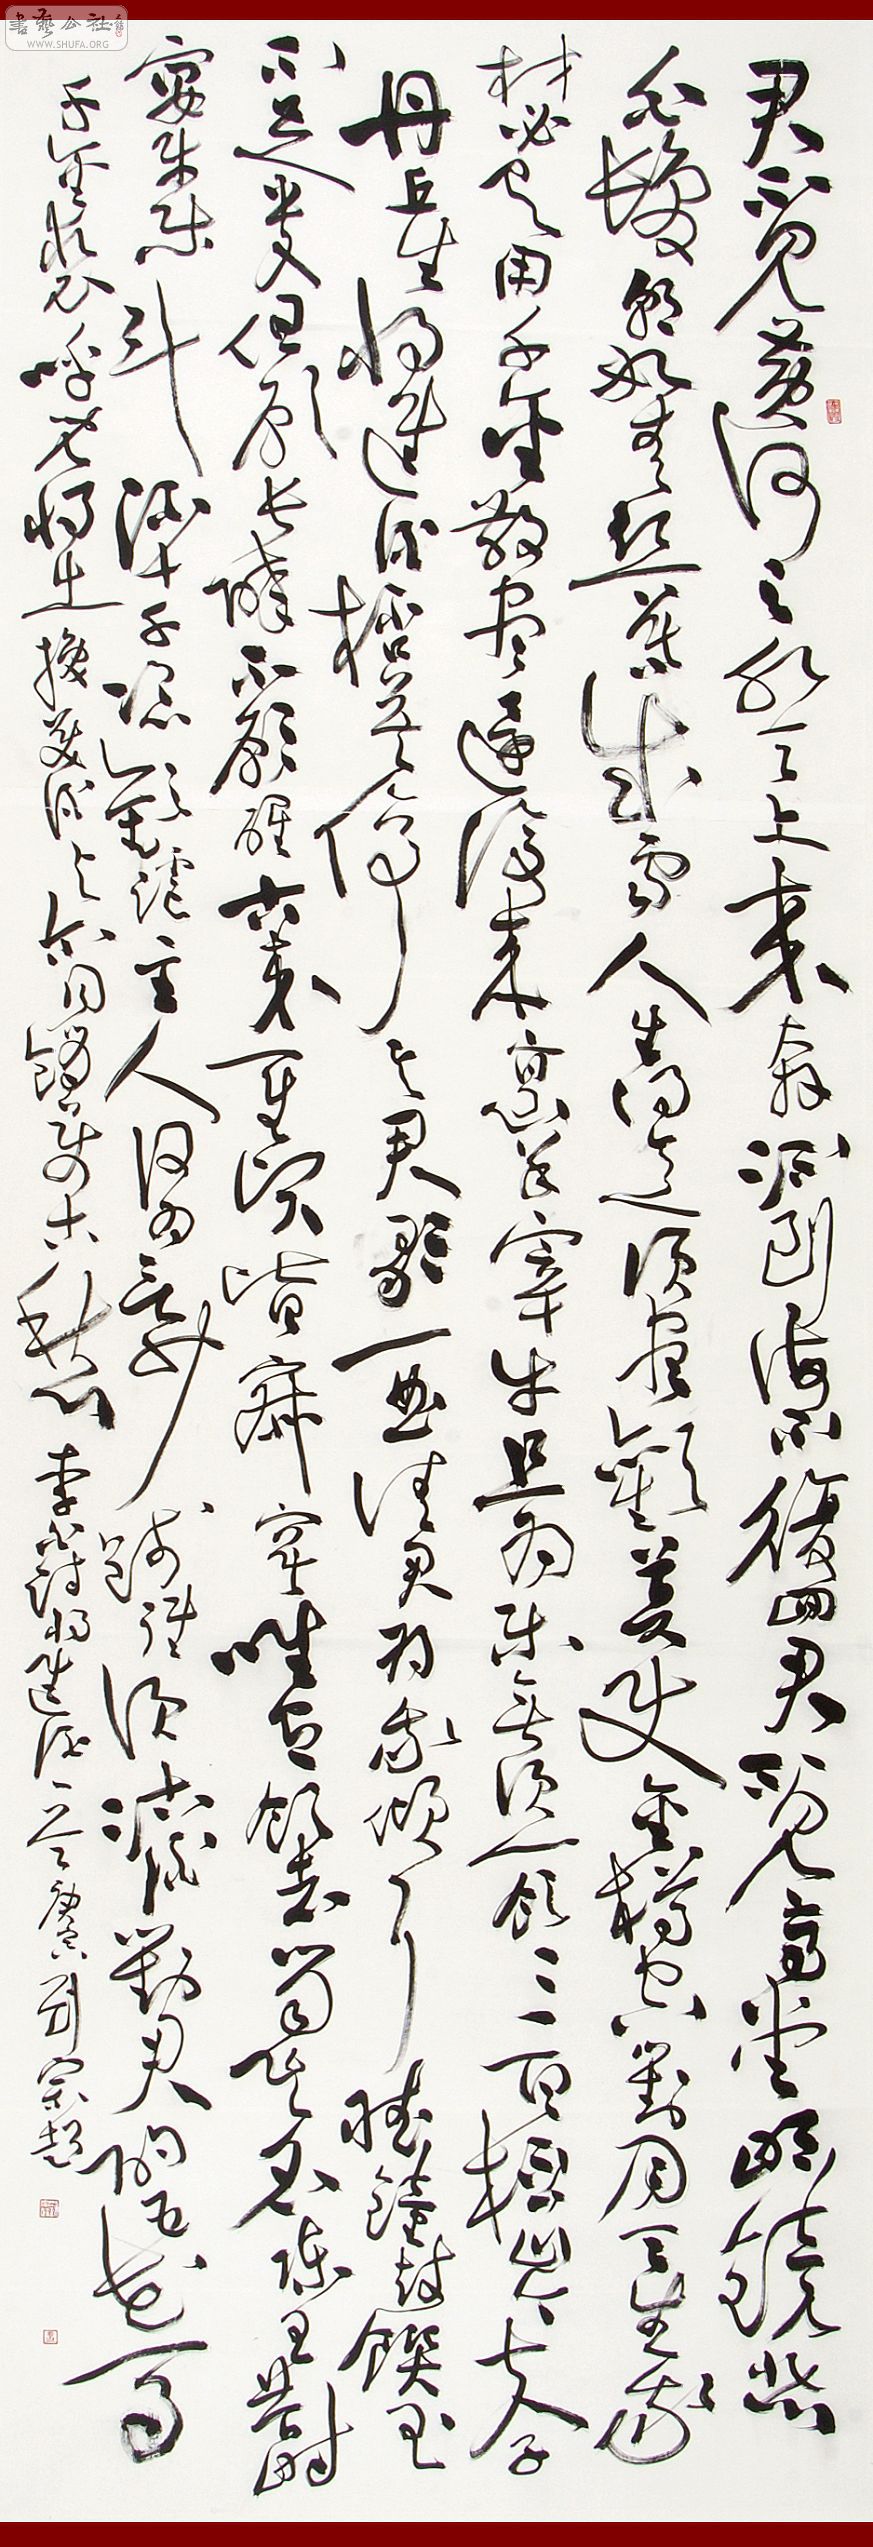 君不見黃河之水天上來奔流到海不復回君不見高堂明鏡悲
白髮朝如青絲暮成雪人生得意須盡歡莫使金樽空對月天生我
材必有用千金散盡還復來烹羊宰牛且為樂會須一飲三百杯岑夫子
丹丘生將進酒杯莫停與君歌一曲請君為我傾耳聽鐘鼓饌玉
不足貴但願長醉不願醒古來聖賢皆寂寞唯有飲者留其名陳王昔時
宴平樂斗酒十千恣歡謔主人何為言少錢徑須沽取對君酌五花馬
千金裘呼兒將出換美酒與爾同銷萬古愁 李白詩將進酒一首 庚寅劉宗超
書藝公社
WWW.SHUFA.ORG